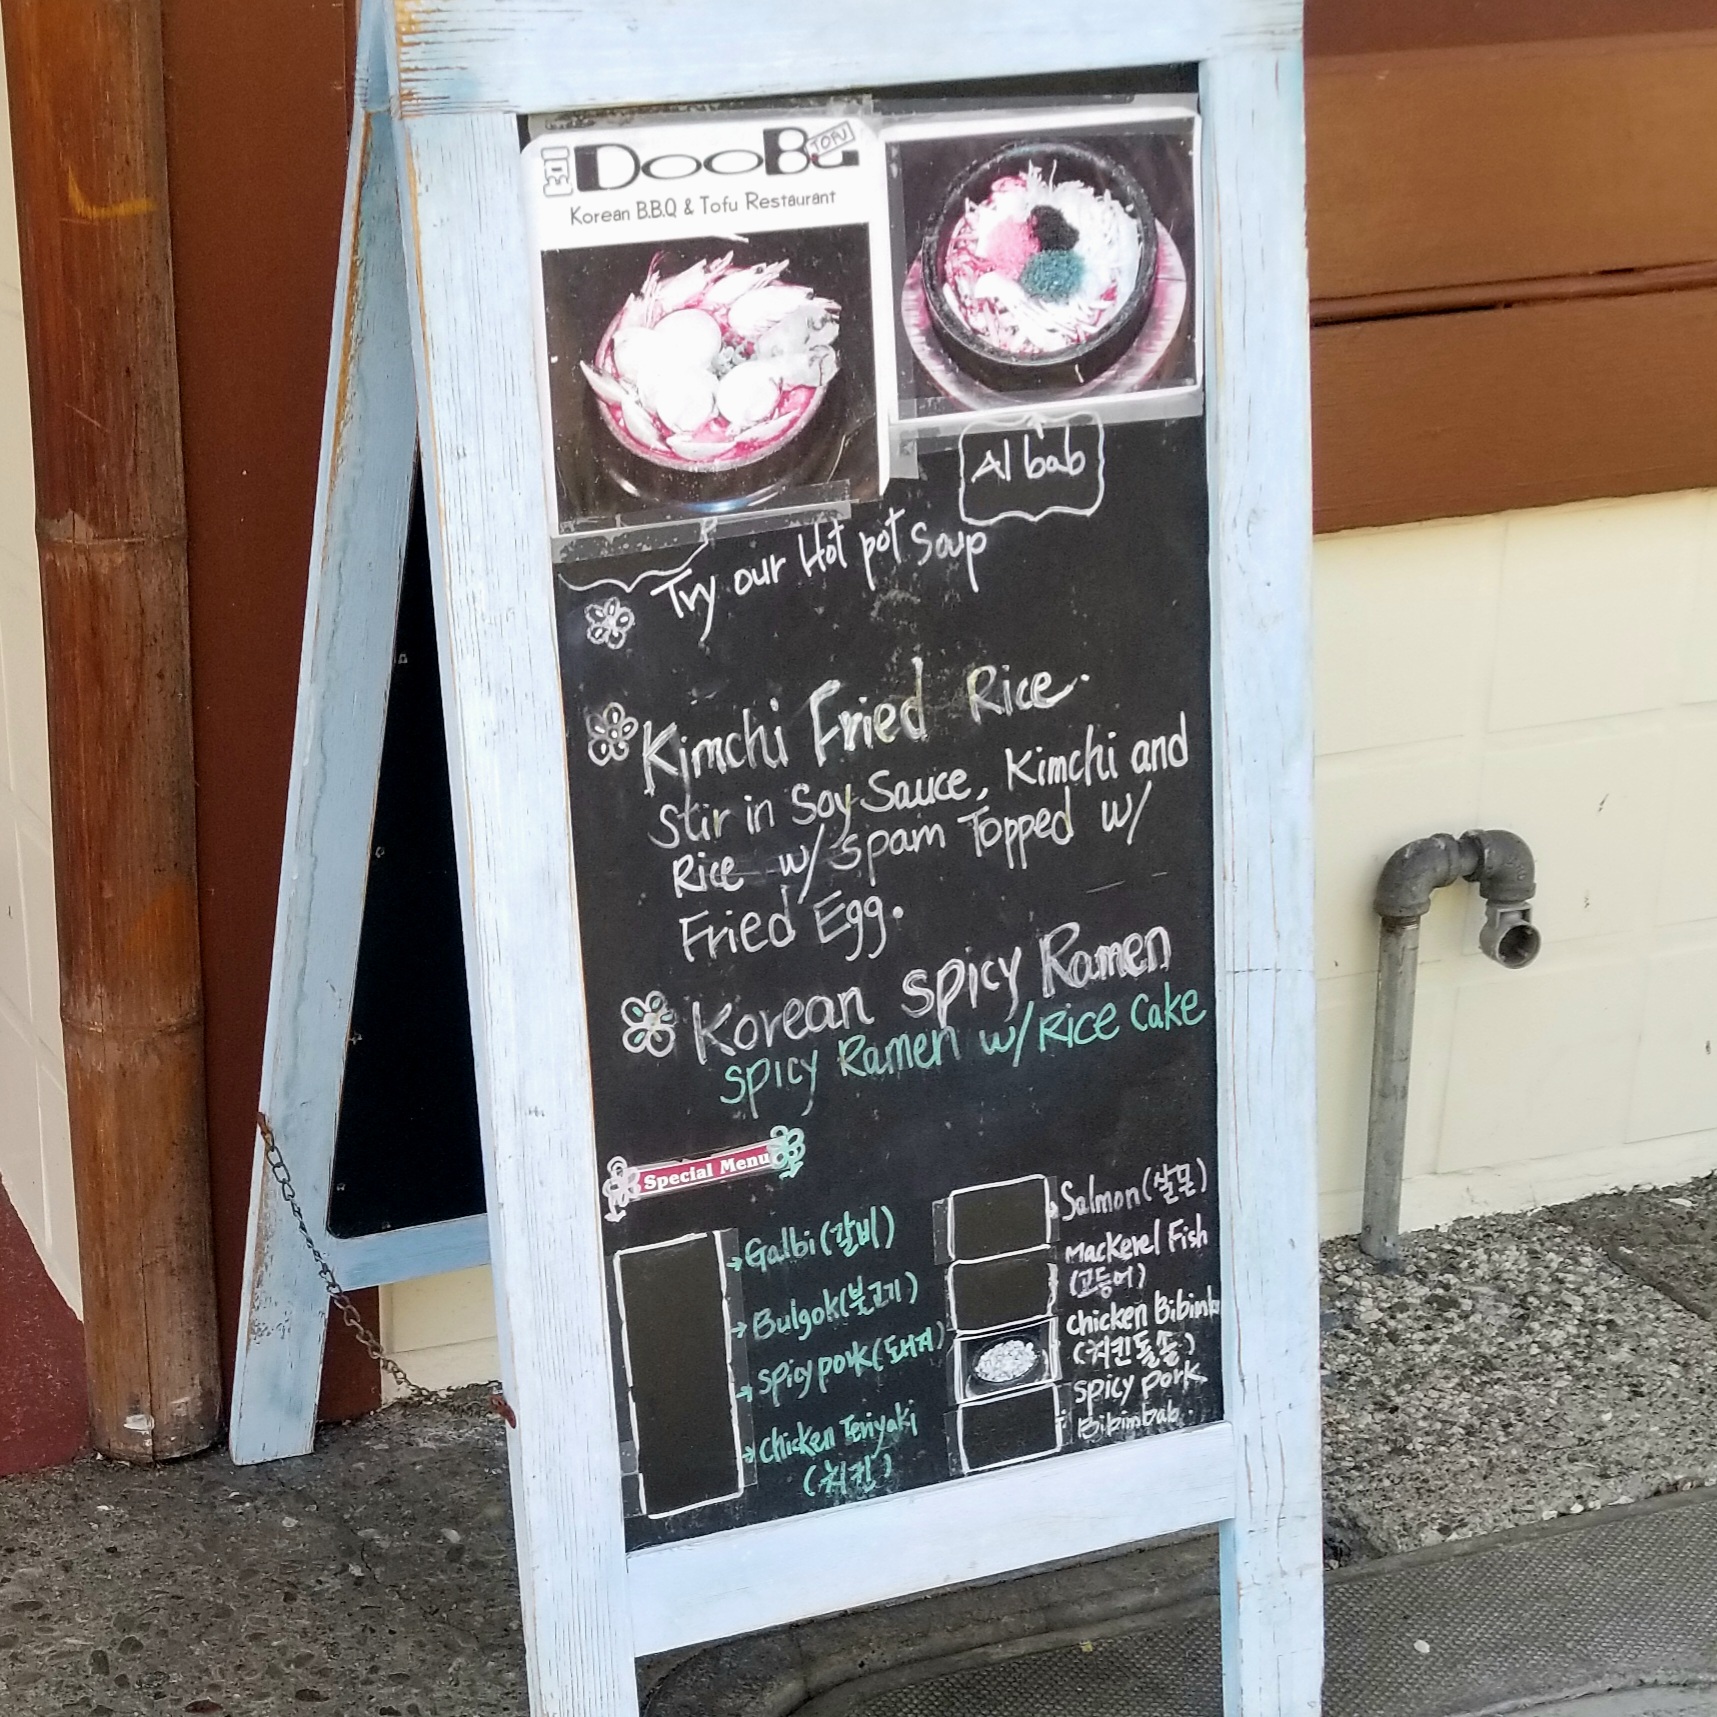 DooBu TOFU
Korean B.B.Q & Tofu Restaurant
Al bab
Try our Hot pot Soup
Kimchi Fried Rice.
Stir in Soy Sauce, Kimchi and
Rice w/ Spam Topped w/
Fried Egg.
Korean Spicy Ramen
Spicy Ramen w/ Rice Cake
Special Menu
Galbi (갈비)
Bulgok (불고기)
Spicy pork (돼지)
Chicken Teriyaki
(치킨)
Salmon (살몬)
Mackerel Fish
(고등어)
Chicken Bibimb
(치킨돌솥)
Spicy Pork
Bibimbab.